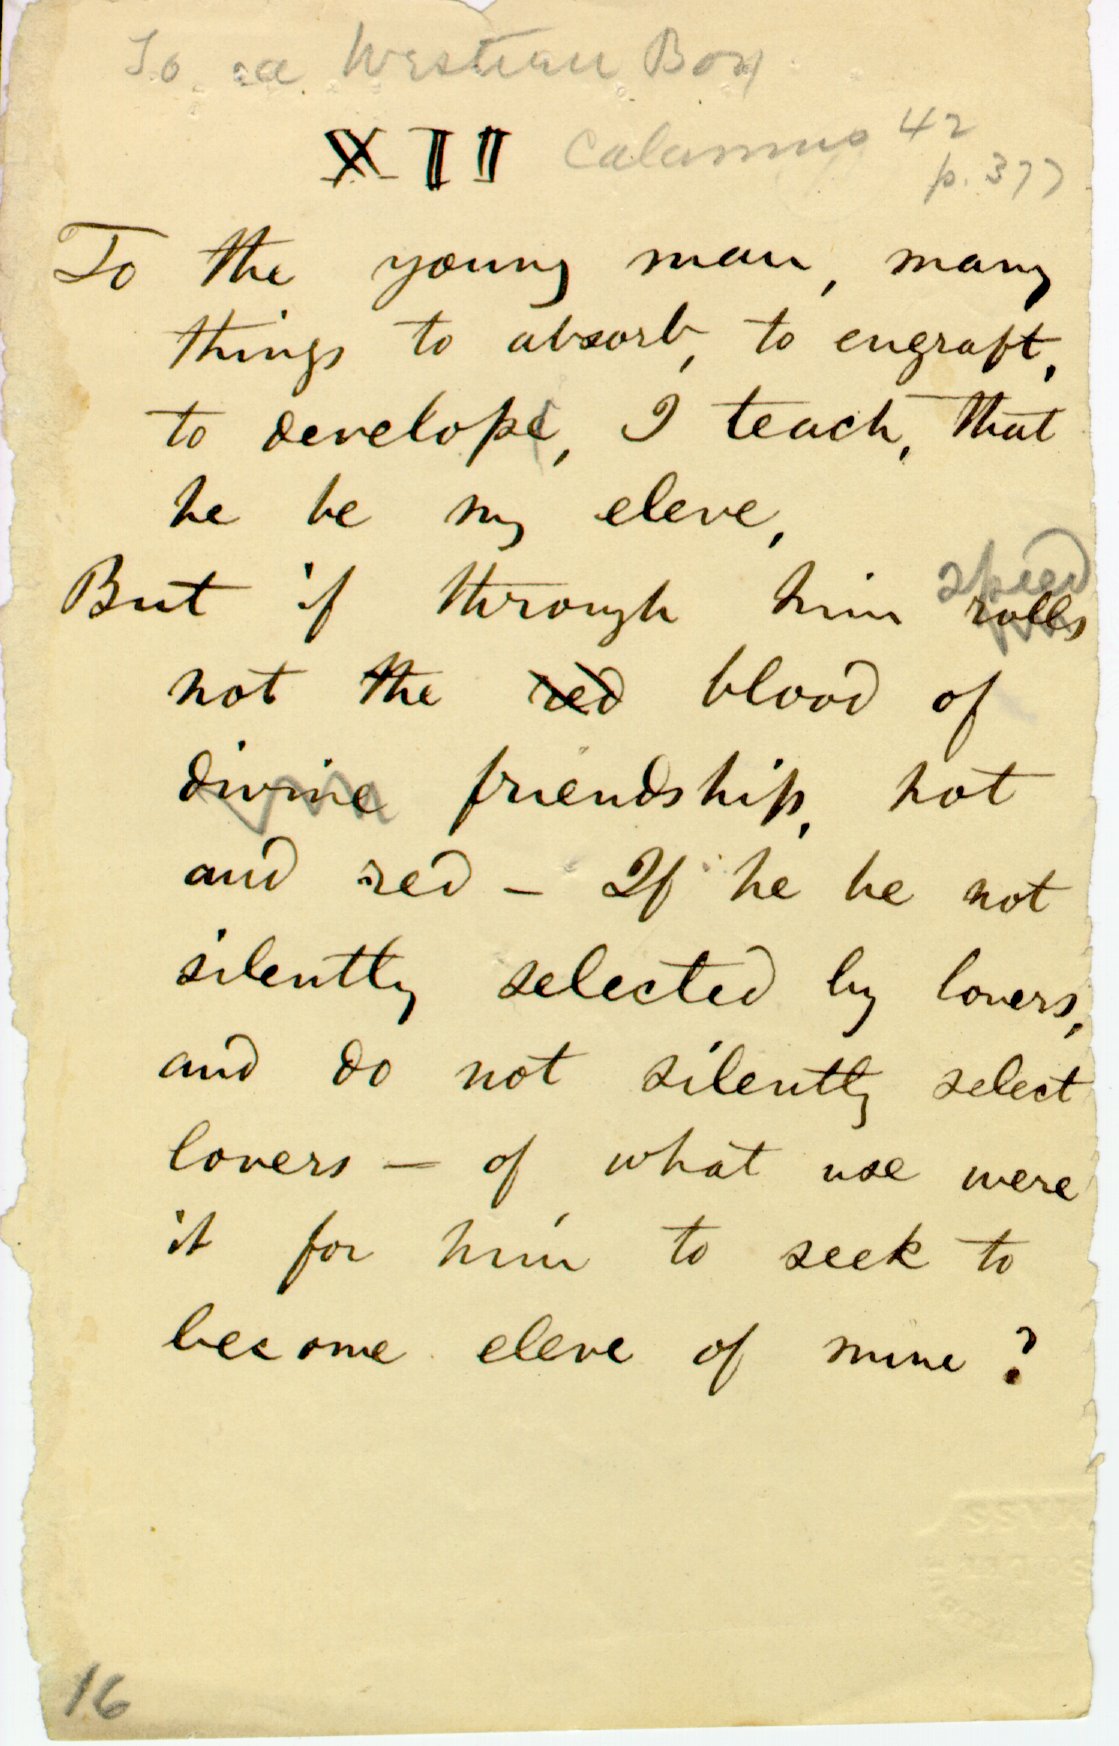 To a Western Boy
XII Calamus 42
p. 377
To the young man, many
things to absorb, to engraft,
to develope, I teach, that
he be my eleve,
speed
But if through him rolls
not the red blood of
divine friendship, hot
and red — If he be not
silently selected by lovers,
and do not silently select
lovers — of what use were
it for him to seek to
become eleve of mine?
16